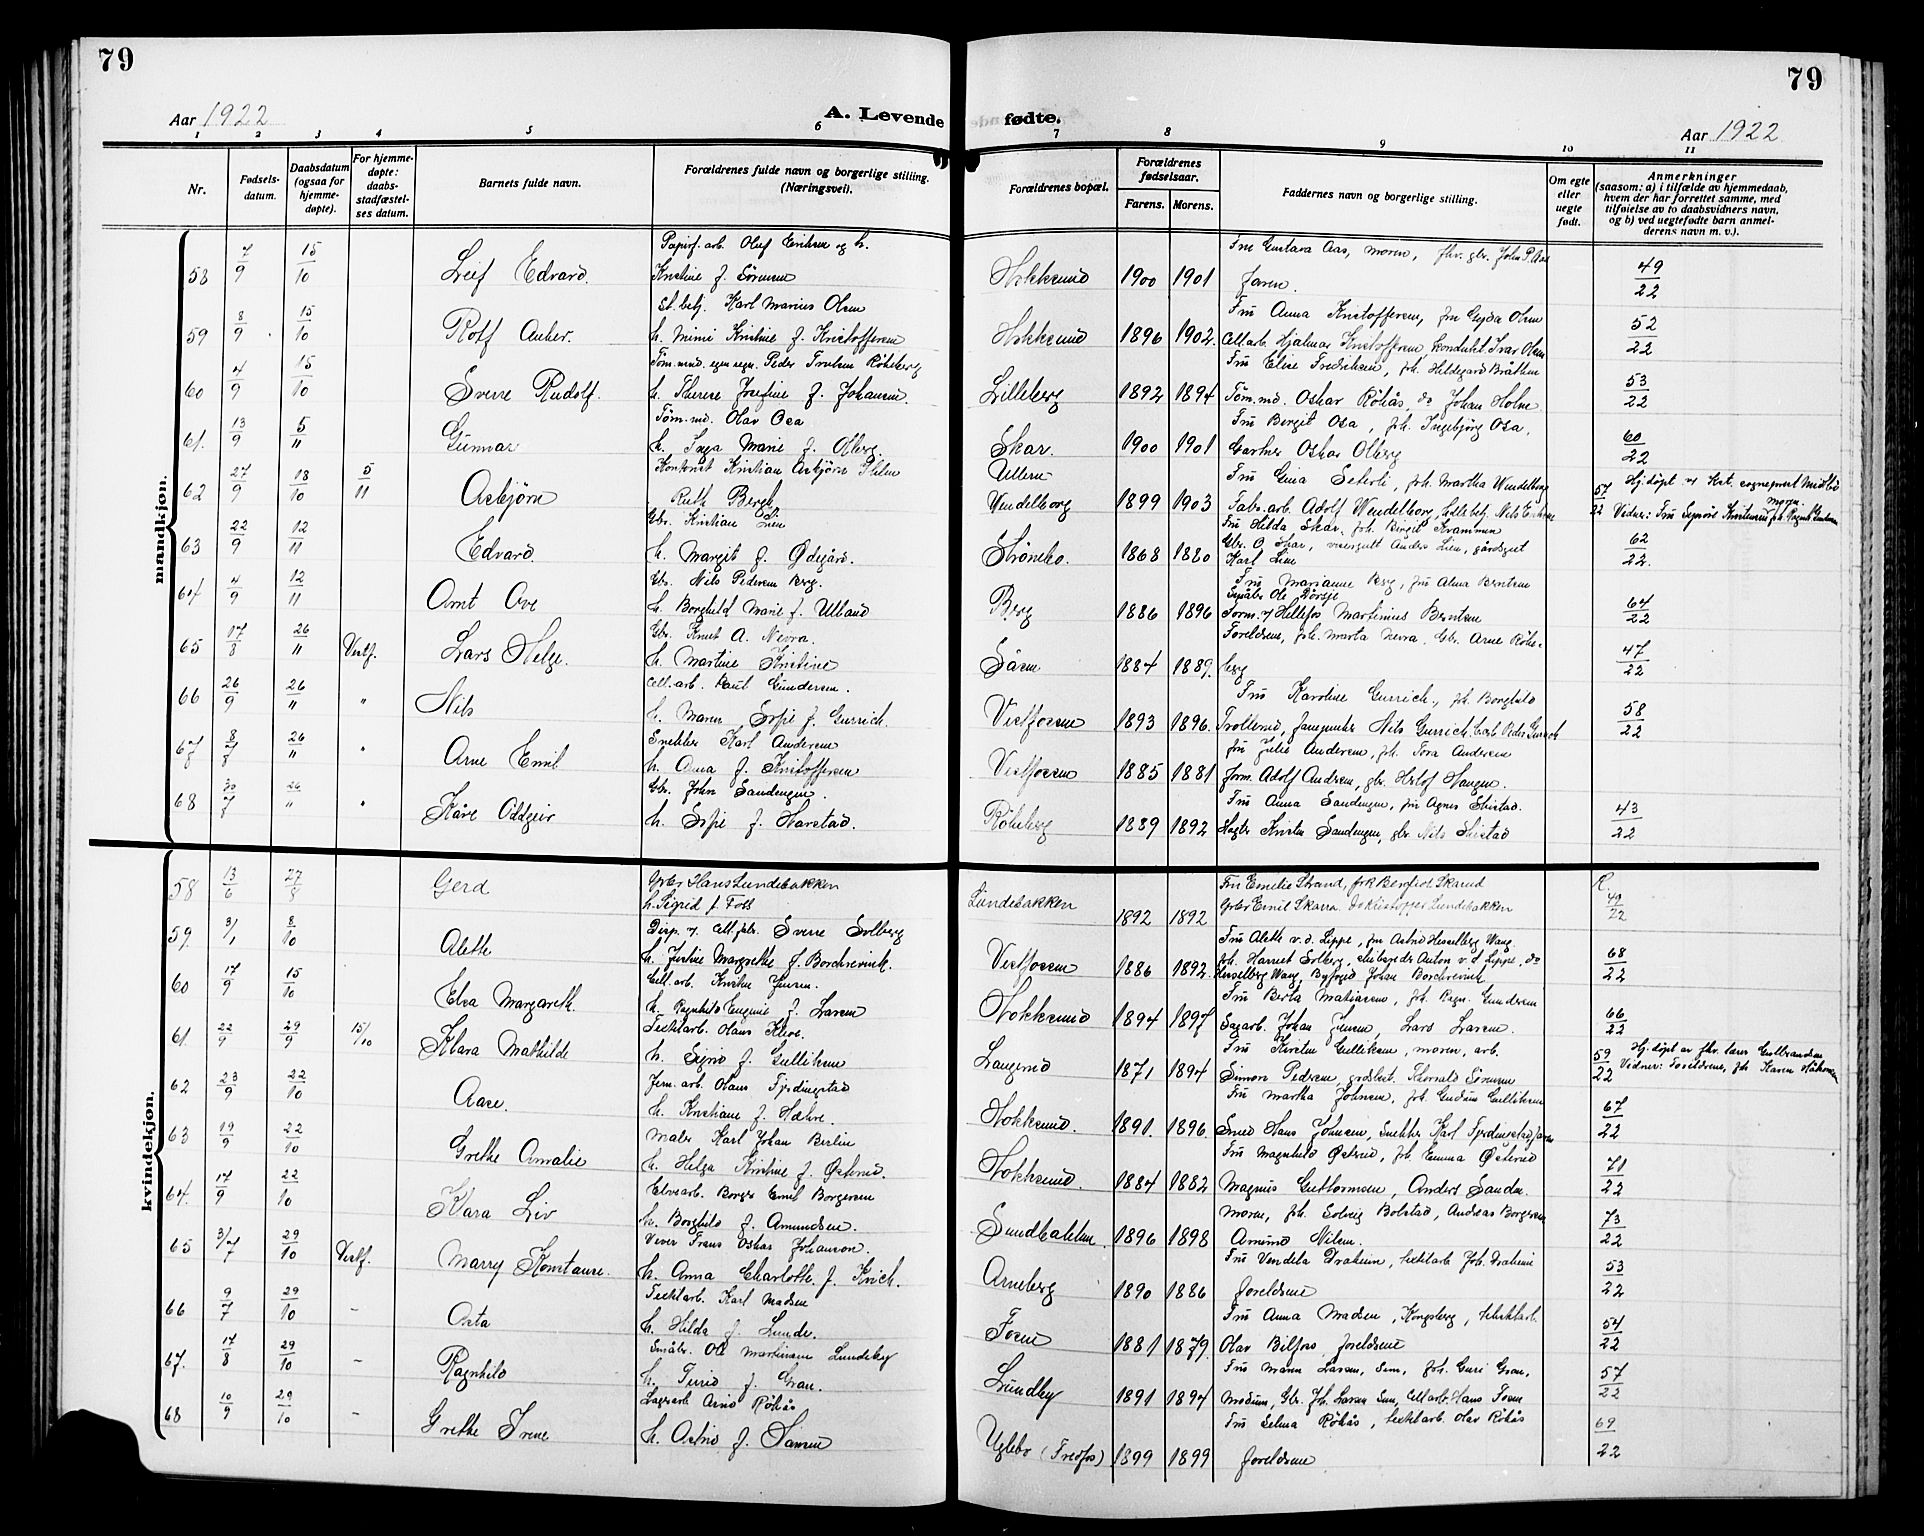 79
79
Aar 1922
A. Levende fødte.
Aar 1922
1 2 3 4 5 6 7 8 9 10 11
Nr.
Fødsels-datum.
Daabsdatum (ogsaa for hjemme-døpte).
For hjemme-døpte: daabs-stadfæstel-ses datum.
Barnets fulde navn.
Forældrenes fulde navn og borgerlige stilling. (Næringsvei).
Forældrenes bopæl.
Forældrenes fødselsaar.
Farens. Morens.
Faddernes navn og borgerlige stilling.
Om egte eller uegte født.
Anmerkninger (saasom: a) i tilfælde av hjemmedaab, hvem der har forrettet samme, med tilføielse av to daabsvidners navn, og b) ved uegtefødte barn anmel-derens navn m. v.).
mandkjøn.
58 7/9 15/10 Leif Edvard. Papirf. arb. Oluf Eriksen og h.
Kristine f. Sørensen Hokksund 1900 1901 Fru Gustava Aas, moren, fhv. gbr. John P. Aas
faren. 49/22
59 8/9 15/10 Rolf Anker. St. betj. Karl Marius Olsen
h. Mimi Kristine f. Kristoffersen Hokksund 1896 1902. Fru Anna Kristoffersen, fru Gyda Olsen
Cell.arb. Hjalmar Kristoffersen, kondukt. Ivar Olsen 52/22
60 4/9 15/10 Sverre Rudolf. Peder Røkeberg
h. Therese Josefine f. Johansen. Lilleberg 1892 1894 Fru Elise Fredriksen, frk. Hildegard Bråthen
Tøm.md. Oskar Røkås, do Johan Holm 53/22
61. 13/9 5/11 Gunnar Tøm.md. Olav Osa
h. Inga Marie f. Olberg. Skar. 1900 1901 Fru Bergit Osa, frk. Ingebjørg Osa,
Gartner Oskar Olberg 60/22
62 27/9 18/10 5/11 Asbjørn Kontorist Kristian Asbjørn
Ruth Bergh Ullern
Wendelborg 1899 1903 Fru Gina Seterli, frk. Martha Wendelborg
Fabr.arb. Adolf Wendelborg, Nils Eriksen 57/22 Hj.døpt
Vidner: Fru
63 22/9 12/11 Edvard Gbr. Kristian Lien
h. Margit f. Ødegård. Strømbo. 1868 1880 Fru Hilda Skar, frk. Birgit Kvammen
Gbr. O. Skar, visergutt Anders Lien, gårdsgut
Karl Lien 62/22.
64 4/9 12/11 Arnt Ove Gbr. Nils Pedersen Berg.
h. Borghild Marie f. Ulland Berg 1886 1896 Fru Marianne Berg, fru Alma Berntsen
Småbr. Ole Dørsje
Form. v/ Hellefos Martinius Berntsen 64/22
65 17/8 26/11 Vestf. Lars Helge. Gbr. Knut A. Nevra.
h. Martine Kristine Såsen 1884 1889. Foreldrene, frk. Marta Nevra. Gbr. Arne Røke-
berg 47/22
66 26/9 26/11 " Nils Cell.arb. Paul Gundersen.
h. Maren Sofie f. Gurrich. Vestfossen 1893 1896. Fru Karoline Gurrich, frk. Borghild
Trollerud, Nils Gurrich, Peder Gurrich 58/22
67 8/8 26/11 " Arne Emil Snekker Karl Andersen
h. Anna f. Kristoffersen Vestfossen 1885 1881 fru Julie Andersen, frk. Tora Andersen
form. Adolf Andersen, gbr. Haugen.
68 30/8 26/11 " Kåre Oddgeir Gbr. John Sandengen.
h. Sofie f. Harstad. Røkeberg 1889 1892 Fru Anna Sandengen, fru Agnes Skistad.
Kristen Sandengen, gbr. Nils Skistad 43/22
kvindekjøn.
58 13/6 27/8 Gerd Gbr Hans Lundebakken
h. Sigrid f. Foss Lundebakken 1892 1892 Fru Emelie Strand, frk Bergliot Skarud
Gbr Emil Skarra do Kristoffer Lundebakken R. 49/22
59 3/1 8/10 Alette Disp. v. Cell.fabr. Sverre Solberg
h. Justine Margrethe f. Borchrevink. Vestfossen 1886 1892. Fru Aleth v.d. Lippe, fru Astrid Hesselberg Wang.
frk. Harriet Solberg, skibsreder Anton v.d. Lippe, do
Hesselberg Wang, Byfoged Johan Borchrevink 68/22
60 17/9 15/10 Elsa Margareth. Cell.arb. Kristen Jensen.
h. Ragnhild Eugenie f. Larsen Hokksund 1894 1897 Fru Berta Mathiasen, frk. Ragn. Gundersen
Sagarb. Johan Jensen, Lars Larsen. 66/22
61 22/9 29/9 15/10 Klara Mathilde Tekstilarb. Hans Kleve.
h. Sigrid f. Gulliksen Langerud 1871 1894 Fru Kirsten Gulliksen, moren, arb.
Simon Pedersen, gårdsbest. Thorvald Sørensen 59/22 Hj.døpt av fhv. lærer Gulbrandsen
Vidner: Foreldrene, frk Karen
62 23/9 22/10 Aase. Jern.arb. Hans Fjerdingstad
h. Kristiane f. Hæhre. Hokksund. 1891. 1896. Fru Martha Johnsen, frk. Gudrun Gulliksen
Smed Hans Johnsen, Snekker Karl Fjerdingstad, faren 67/22
63 19/9 22/10 Grethe Amalie Maler Karl Johan Berlin
h. Helga Kristine f. Østerud Hokksund. 1884 1882 Fru Magnhild Østerud, frk. Emma Østerud
Magnus Guttormsen, Anders Sanden. 71/22
64. 17/9 22/10 Klara Liv Elvearb. Borger Emil Borgersen
h. Borghild f. Amundsen. Sundbakken 1896 1898 Moren, frk. Solveig Bolstad, Andreas Borgersen
Amund Nilsen. 73/22
65 3/7 29/10 Vestf. Marry Konstanse. Vever Frans Oskar Johanson.
h. Anna Charlotte f. Krich. Arneberg 1890 1886 Fru Vendela Draheim, tekstilarb Joh. Draheim
foreldrene 53/22
66 9/7 29/10 - Asta Tekstilarb. Karl Madsen
h. Hilda f. Lunde. Fosen 1881 1879. Fru Anna Madsen, Kongsberg, tekstilarb.
Olav Bilfos, foreldrene 54/22
67. 17/8 29/10 - Ragnhild Småbr. Ole Martinsen Lundeby
h. Turid f. Gran. Lundby 1891 1894 Fru Maren Larsen, Sem, frk. Guri Gran,
Modum, Gbr. Joh. Larsen Sem, Cell.arb. Hans Fosen 57/22
68 10/9 29/10 - Grethe Irene Lagerarb Arne Røkås
h. Astrid f. Hansen Uglebo (Fredfos) 1899 1899 Fru Selma Røkås, tekstilarb. Olav Røkås
foreldrene 69/22